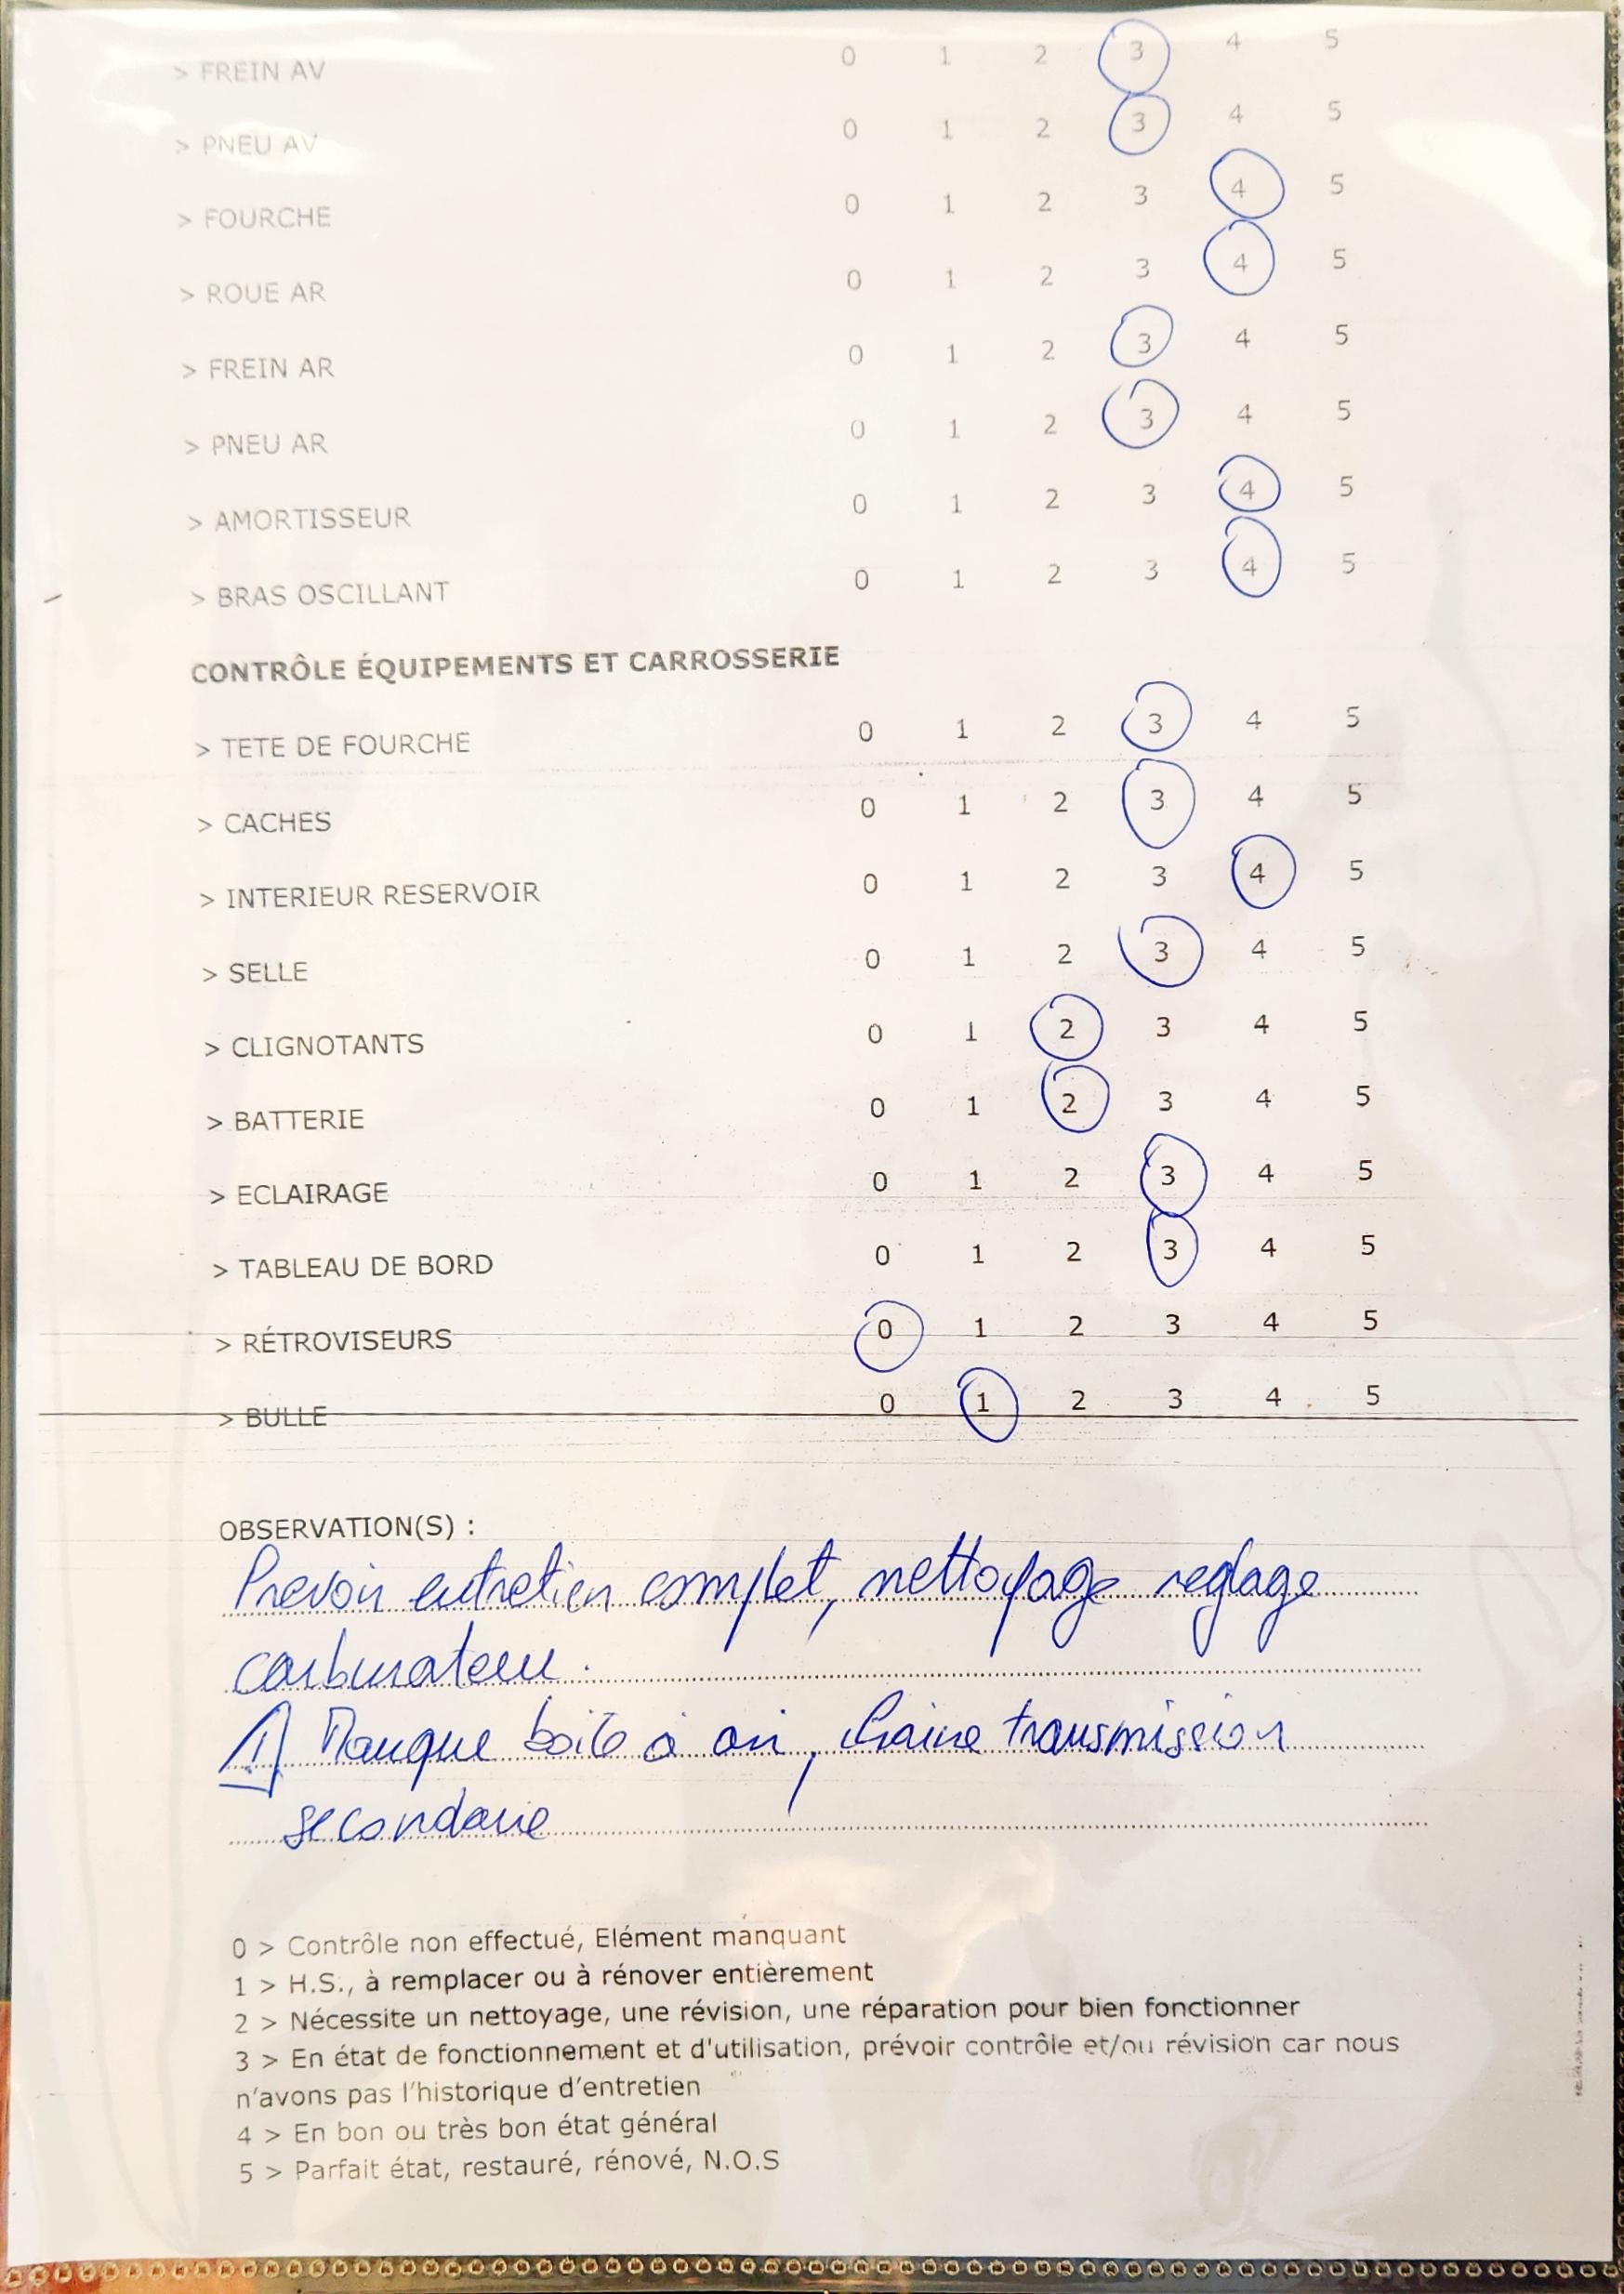 > FREIN AV 0 1 2 3 4 5
> PNEU AV 0 1 2 3 4 5
> FOURCHE 0 1 2 3 4 5
> ROUE AR 0 1 2 3 4 5
> FREIN AR 0 1 2 3 4 5
> PNEU AR 0 1 2 3 4 5
> AMORTISSEUR 0 1 2 3 4 5
> BRAS OSCILLANT 0 1 2 3 4 5
CONTRÔLE ÉQUIPEMENTS ET CARROSSERIE
> TETE DE FOURCHE 0 1 2 3 4 5
> CACHES 0 1 2 3 4 5
> INTERIEUR RESERVOIR 0 1 2 3 4 5
> SELLE 0 1 2 3 4 5
> CLIGNOTANTS 0 1 2 3 4 5
> BATTERIE 0 1 2 3 4 5
> ECLAIRAGE 0 1 2 3 4 5
> TABLEAU DE BORD 0 1 2 3 4 5
> RÉTROVISEURS 0 1 2 3 4 5
> BULLE 0 1 2 3 4 5
OBSERVATION(S) :
Prevoir entretien complet, nettoyage reglage
carburateur.
! Manque boite à air, chaine transmission
secondaire
0 > Contrôle non effectué, Elément manquant
1 > H.S., à remplacer ou à rénover entièrement
2 > Nécessite un nettoyage, une révision, une réparation pour bien fonctionner
3 > En état de fonctionnement et d'utilisation, prévoir contrôle et/ou révision car nous
n'avons pas l'historique d'entretien
4 > En bon ou très bon état général
5 > Parfait état, restauré, rénové, N.O.S